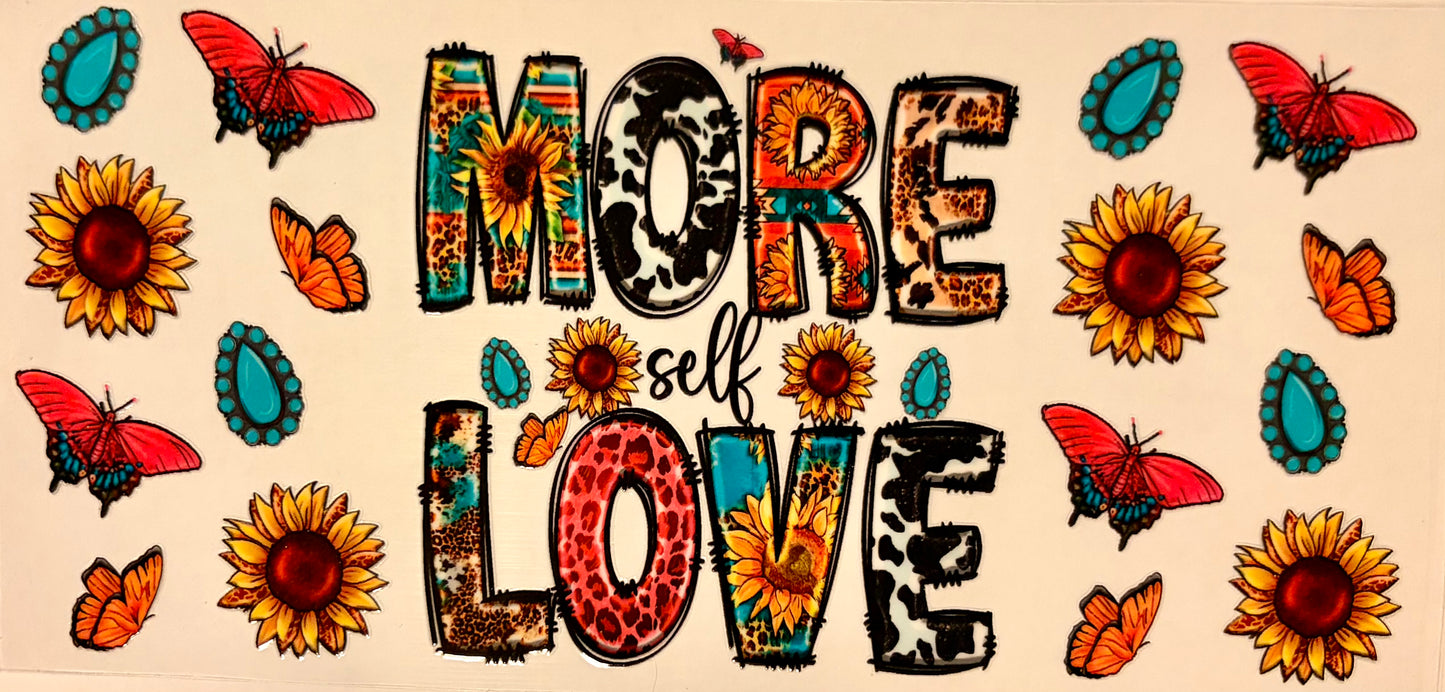 MORE
self
LOVE